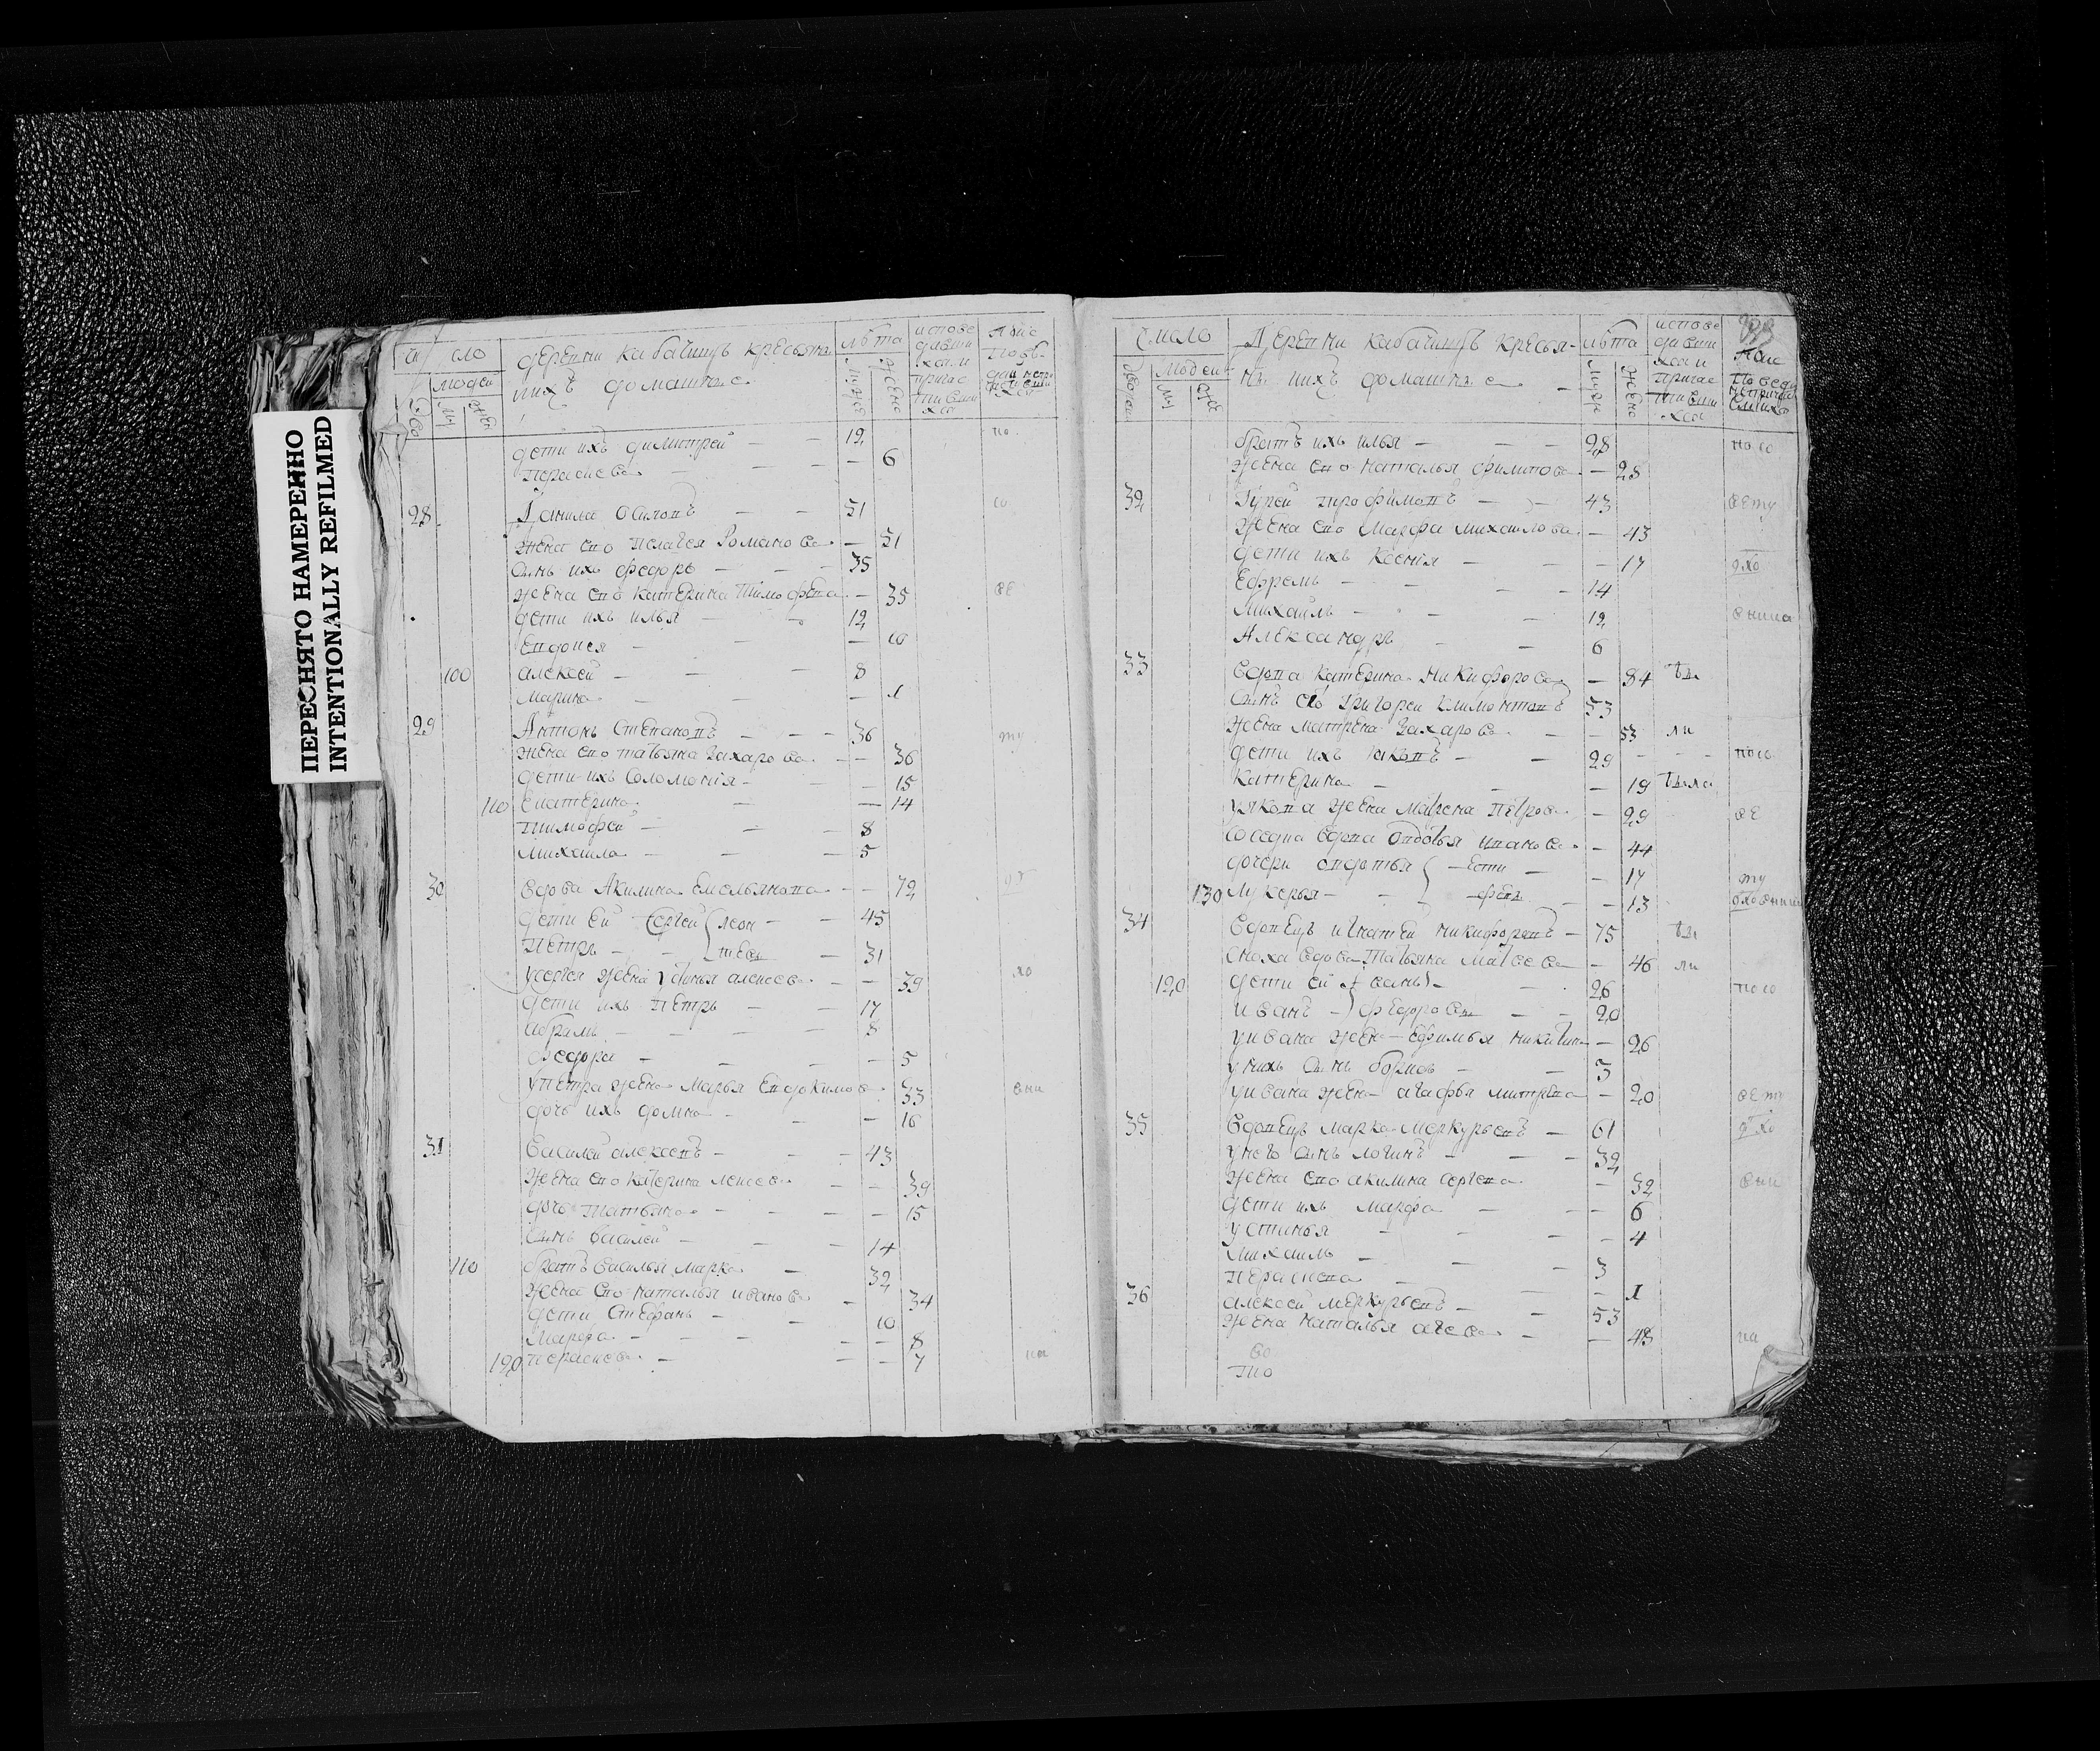 ПЕРЕСНЯТО НАМЕРЕННО
INTENTIONALLY REFILMED
чи сло деревни кабачищъ крестьяня лѣта испове
людеи нихъ домашнне
дети ихъ димитреи — — 12 по
Пераскева — — — 6
28 Данила Осиповъ — — 51 со
жена его пелагея Романова — 51
сынъ ихъ федоръ — — — 35
жена его катерина тимофѣева — 35 ве
дети ихъ илья — — 12
Евдокея — — 10
100 алексеи — — 8
Марина — — 1
29 Антонъ Степановъ — — — 36 ту
жена его татьяна захарова — — 36
дети ихъ Соломония — — 15
110 Екатерина — — 14
тимофеи — — — 8
михаила — — — 5
30 вдова Акилина Емельянова — — 72
дети еи Сергеи леон — — 45
Петръ — — тьевы — 31
у сергея жена устинья алексева — — 39 хо
дети ихъ Петръ — — 17
Абрамъ — — — — 8
федора — — — 5
у петра жена Марья Евдокимова 33 вни
дочь ихъ домна — — 16
31 Василеи алексеевъ — — — 43
жена его катерина — — 39
дочь татьяна — — — — 15
сынъ василеи — — — 14
110 братъ василья марка — 32
жена его наталья иванова — 34
дети Стефанъ — — 10
Марфа — — — — — 8
120 пераскева — — — 7 на
число Деревни кабачищъ крестья- лѣта испове
людеи нъ нихъ домашнне —
братъ ихъ илья — — — 28 по со
жена его наталья филипова — 28
32 Гурей трофимовъ — — 43 вету
жена его марфа михаилова — 43
дети ихъ Ксения — — — 17 дхо
Ефремъ — — — — 14
михаилъ — — — 12 вниа
Александръ — — 6
33 вдова катерина никифорова — 84 бы
сынъ ея Григореи климонтовъ 53
жена матрена захарова — — 53 ли
дети ихъ яковъ — — 29 — — — посо
катерина — — — 19
у якова жена матрена петрова — 29 ве
соседка вдова овдотья иванова — 44
дочери овдотья — Евти — — 17 ту
130 лукерья — — фѣевы — — 13
34 вдовецъ игнатеи никифоровъ — 75 бы
сноха вдова татьяна матвеева — 46 ли
120 дети еи иванъ — — 26 по со
иванъ — федоровы — — 20
у ивана жена Ефимья никитина — 26
у нихъ сынъ борисъ — — 3
у ивана жена агафья митрева — 20 вету
35 вдовецъ марка меркурьевъ — 61 дхо
у него сынъ логинъ — — — 32
жена его акилина сергева — 32 вни
дети ихъ марфа — — — 6
устинья — — — — 4
михаилъ — — — 3
пераскева — — — 1
36 алексеи меркурьевъ — — 53
жена наталья — — 43 на
во
тпо